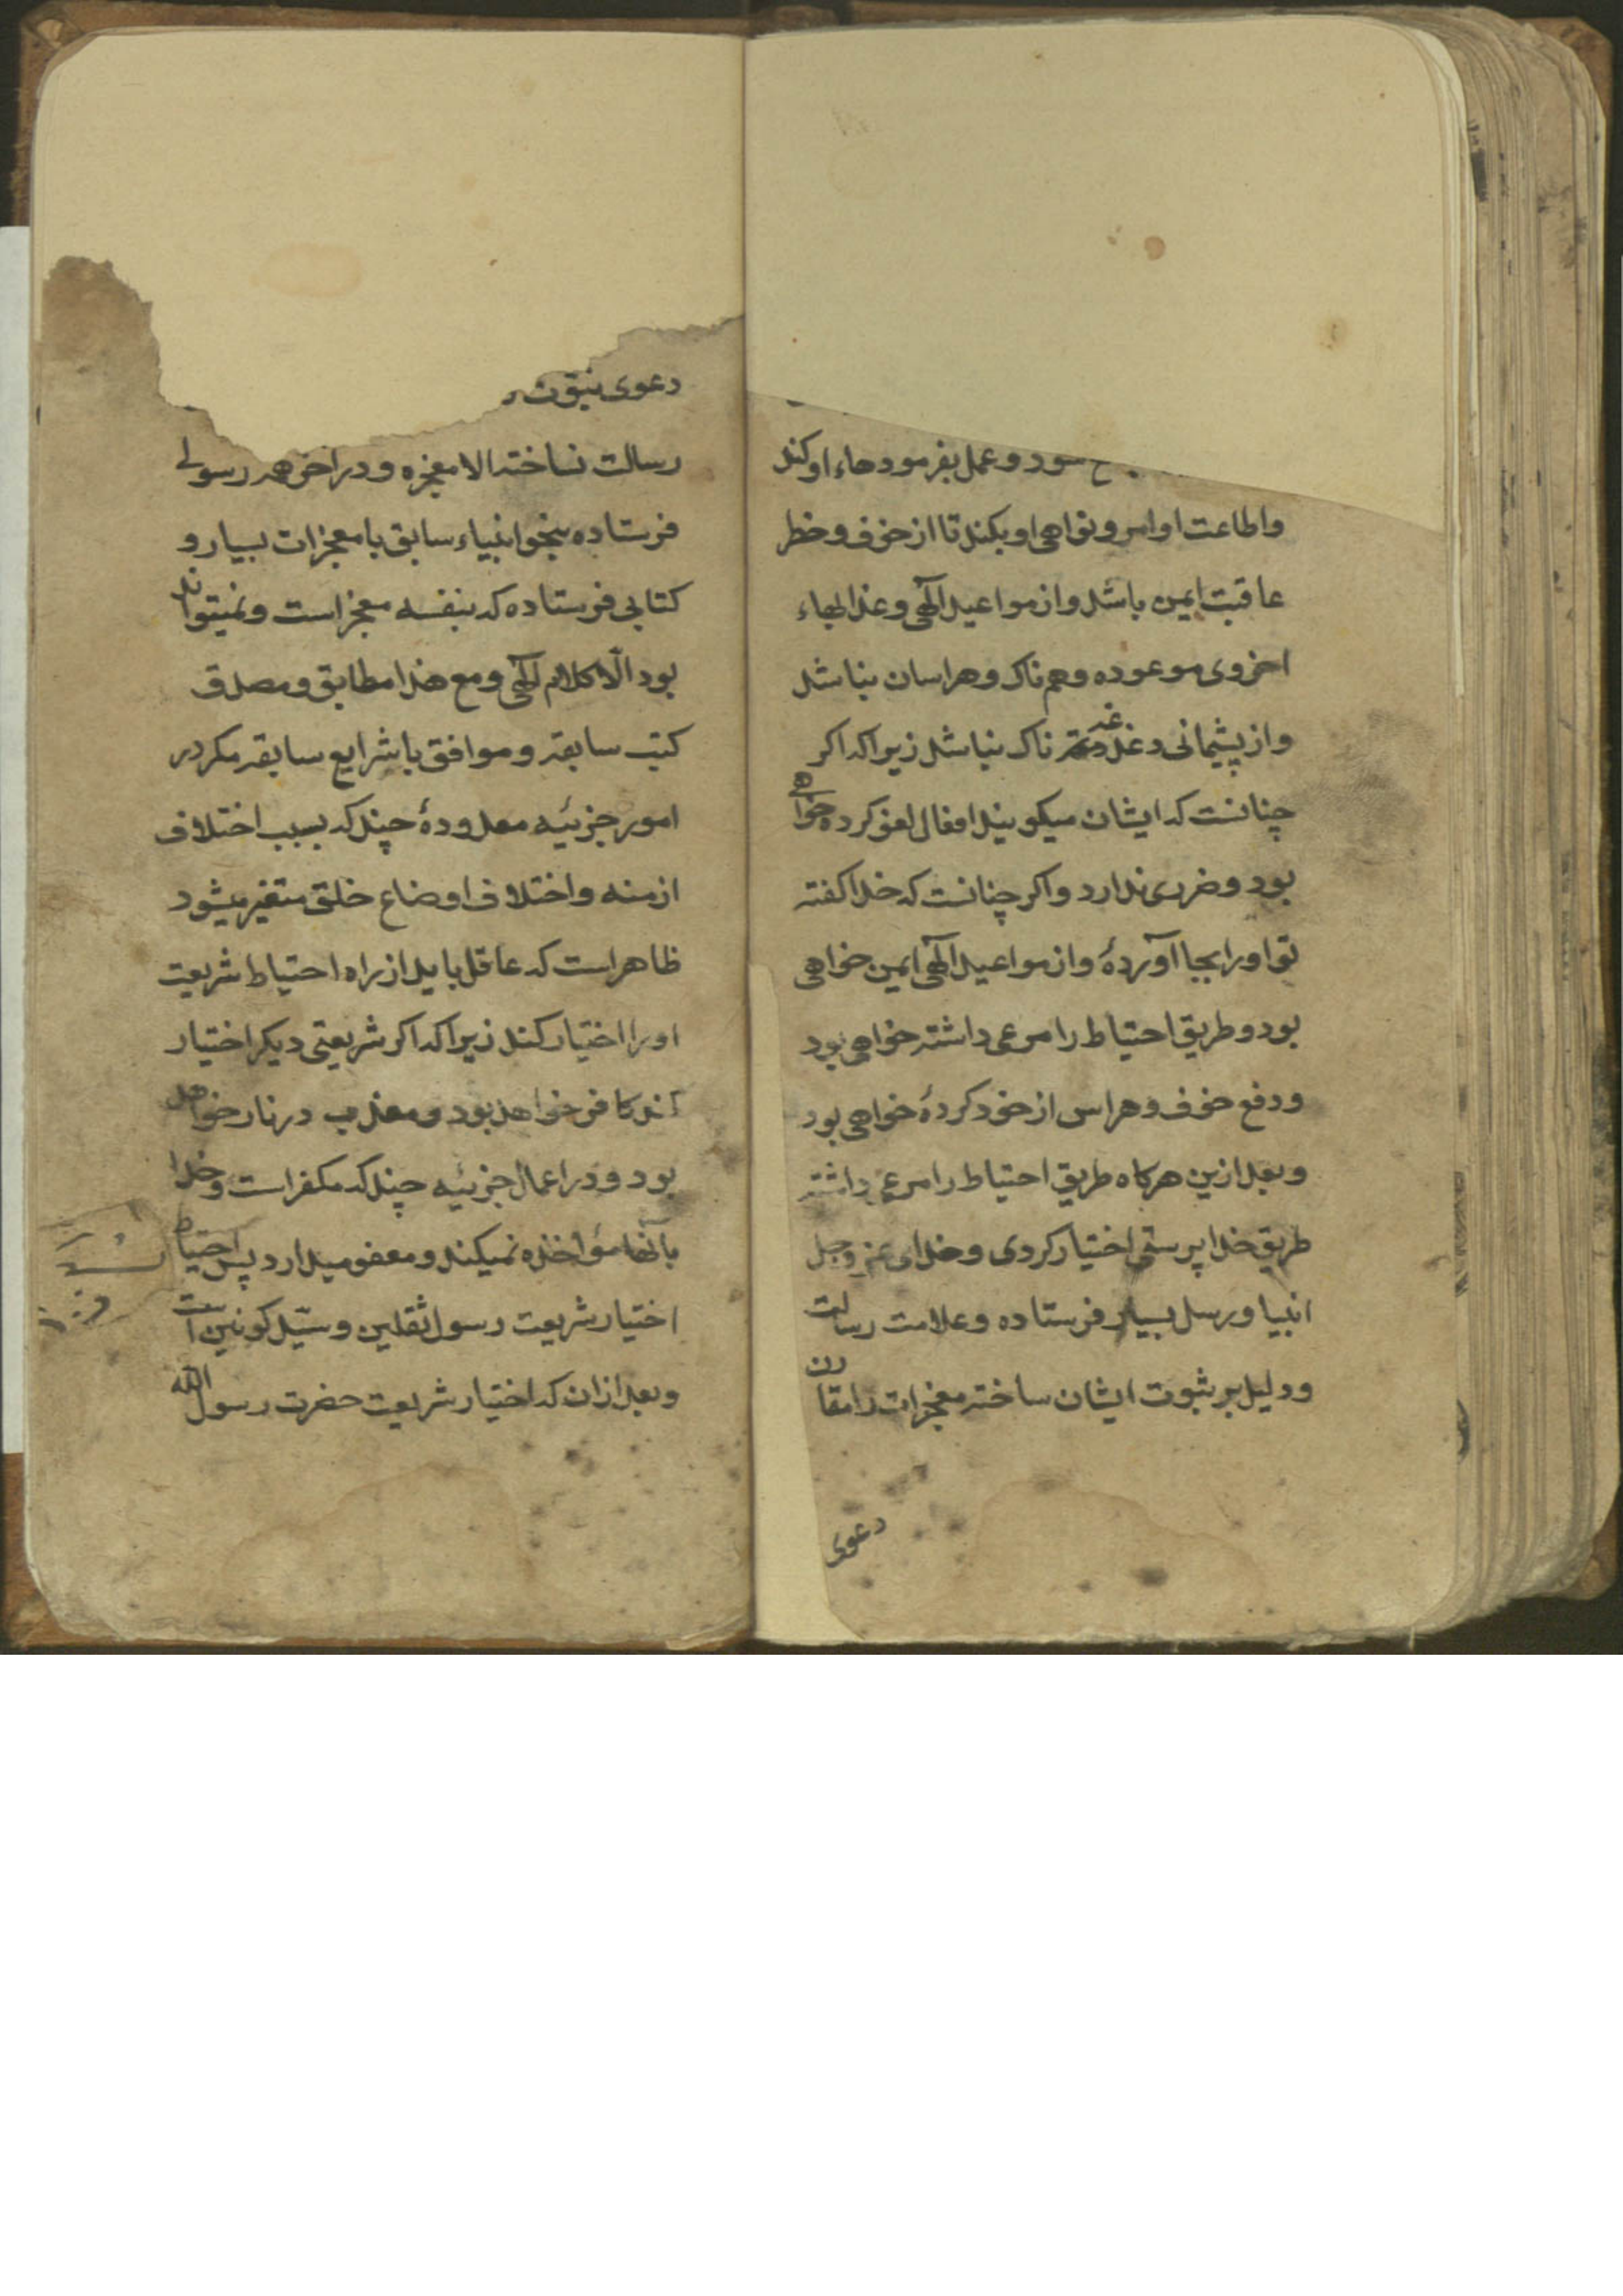 سود و عمل بفرمودهاء او کند
واطاعت اوامر و نواهی او بکند تا از خوف و خطر
عاقبت ایمن باشد و از مواعید الٓهی و عذابهاء
اخروی موعوده وهم ناک و هراسان نباشد
و از پشیمانی دغدغه ناک نباشد زیرا که اکر
چنانست که ایشان میکویند افعال لغو کرده خواهی
بود و ضرری ندارد و اکر چنانست که خدا کفته
تو او را بجا آوردهٔ و از مواعید الٓهی ایمن خواهی
بود و طریق احتیاط را مرعی داشته خواهی بود
و دفع خوف و هراس از خود کردهٔ خواهی بود
و بعد ازین هرکاه طریق احتیاط را مرعی داشته
طریق خدا پرستی اختیار کردی و خدای عز وجل
انبیا و رسل بسیار فرستاده و علامت رسالت
و دلیل بر ثبوت ایشان ساخته معجزات را مقارن
دعوی
دعوی نبوّت
رسالت نساخته الا معجزه و در اخر هر رسولی
فرستاده بنحو انبیاء سابق با معجزات بسیار و
کتابی فرستاده که بنفسه معجز است و نمیتواند
بود الّا کلام الٓهی و مع هذا مطابق و مصدق
کتب سابقه و موافق با شرایع سابقه مکر در
امور جزئیه معدودهٔ چند که بسبب اختلاف
ازمنه و اختلاف اوضاع خلق متغیر میشود
ظاهر است که عاقل باید از راه احتیاط شریعت
او را اختیار کند زیرا که اکر شریعتی دیکر اختیار
کند کافر خواهد بود و معذب در نار خواهد
بود و در اعمال جزئیه چند که مکفر است و خدا
بآنها مؤاخذه نمیکند و معفو میدارد پس احتیاط
اختیار شریعت رسول ثقلین و سیّد کونین است
و بعد از ان که اختیار شریعت حضرت رسول الله